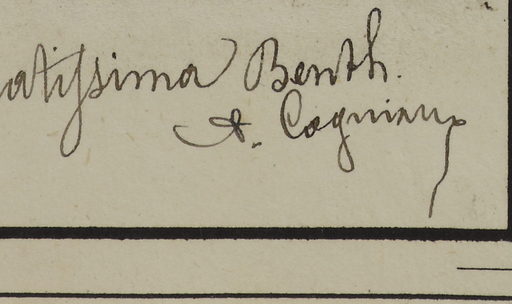 atissima Benth.
A. Cogniaux